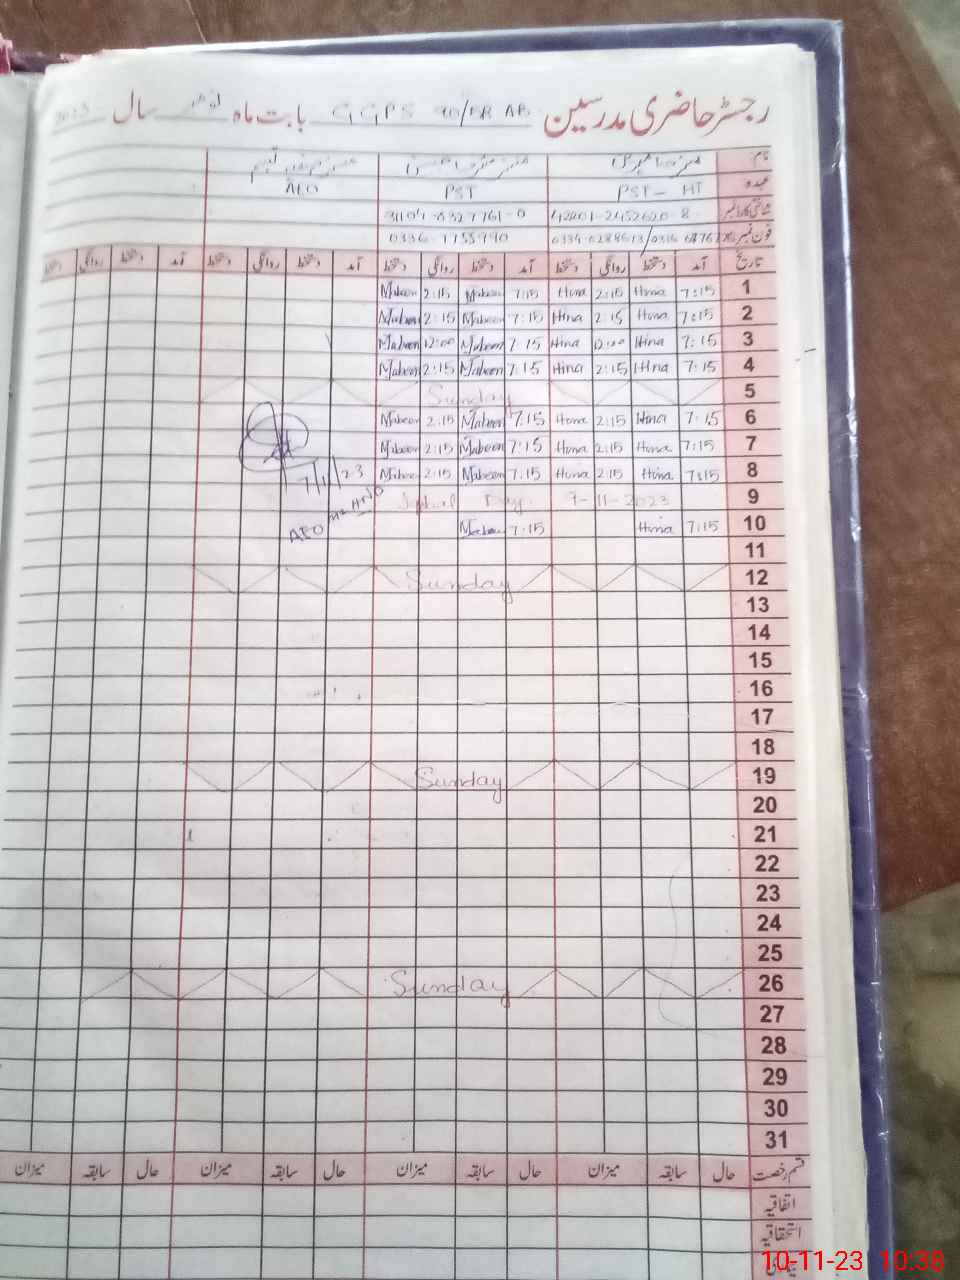 رجسٹر حاضری مدرسین GGPS 90/BR AB بابت ماہ نومبر سال 2023
نام:
عہدہ PST - HT PST AEO
شناختی کارڈ نمبر 42201-2452620-8 31104-8327761-0
فون نمبر 0334-6288613/0316
تاریخ آمد دستخط روانگی دستخط آمد دستخط روانگی دستخط آمد دستخط روانگی دستخط آمد دستخط روانگی دستخط
1 7:15 Hina 2:15 Hina 7:15 Mabeen 2:15 Mabeen
2 7:15 Hina 2:15 Hina 7:15 Mabeen 2:15 Mabeen
3 7:15 Hina 12:00 Hina 7:15 Mabeen 12:00 Mabeen
4 7:15 Hina 2:15 Hina 7:15 Mabeen 2:15 Mabeen
5 Sunday
6 7:15 Hina 2:15 Hina 7:15 Mabeen 2:15 Mabeen
7 7:15 Hina 2:15 Hina 7:15 Mabeen 2:15 Mabeen
8 7:15 Hina 2:15 Hina 7:15 Mabeen 2:15 Mabeen 7/11/23
9 Iqbal Day 9-11-2023
10 7:15 Hina 7:15 Mabeen AEO
11
12 Sunday
13
14
15
16
17
18
19 Sunday
20
21
22
23
24
25
26 Sunday
27
28
29
30
31
قسم رخصت حال سابقہ میزان حال سابقہ میزان حال سابقہ میزان حال سابقہ میزان
اتفاقیہ
استحقاقیہ
10-11-23 10:38